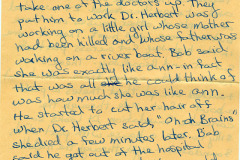 take one of the doctors up. They
put him to work Dr. Herbert was
working on a little girl whose mother
had been killed and whose father was
working on a river boat. Bob said
she was exactly like ann - in fact
that was all he could think of
was how much she was like ann.
He started to cut her hair off
when Dr. Herbert said, "Oh oh Brains"
she died a few minutes later. Bob
said he got out of the hospital